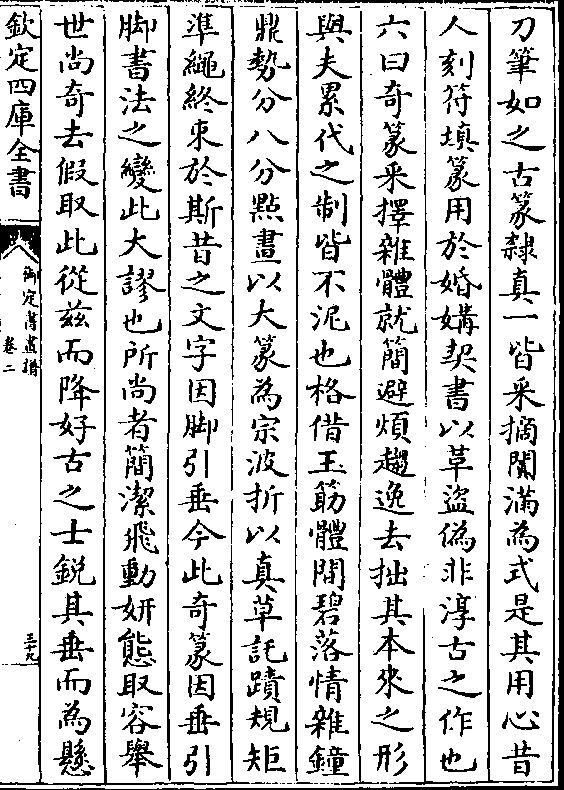 刀筆如之古篆隸真一皆采摘闐滿為式是其用心昔
人刻符填篆用於婚媾契書以草盜偽非淳古之作也
六曰奇篆采擇雜體就簡避煩趨逸去拙其本來之形
與夫累代之制皆不泥也格借玉筯體間碧落情雜鐘
鼎勢分八分點畫以大篆為宗波折以真草託蹟規矩
準繩終束於斯昔之文字因脚引垂今此奇篆因垂引
脚書法之變此大謬也所尚者簡潔飛動妍態取容舉
世尚奇去假取此從茲而降好古之士銳其垂而為懸
欽定四庫全書
御定書畫譜
卷二
三十九